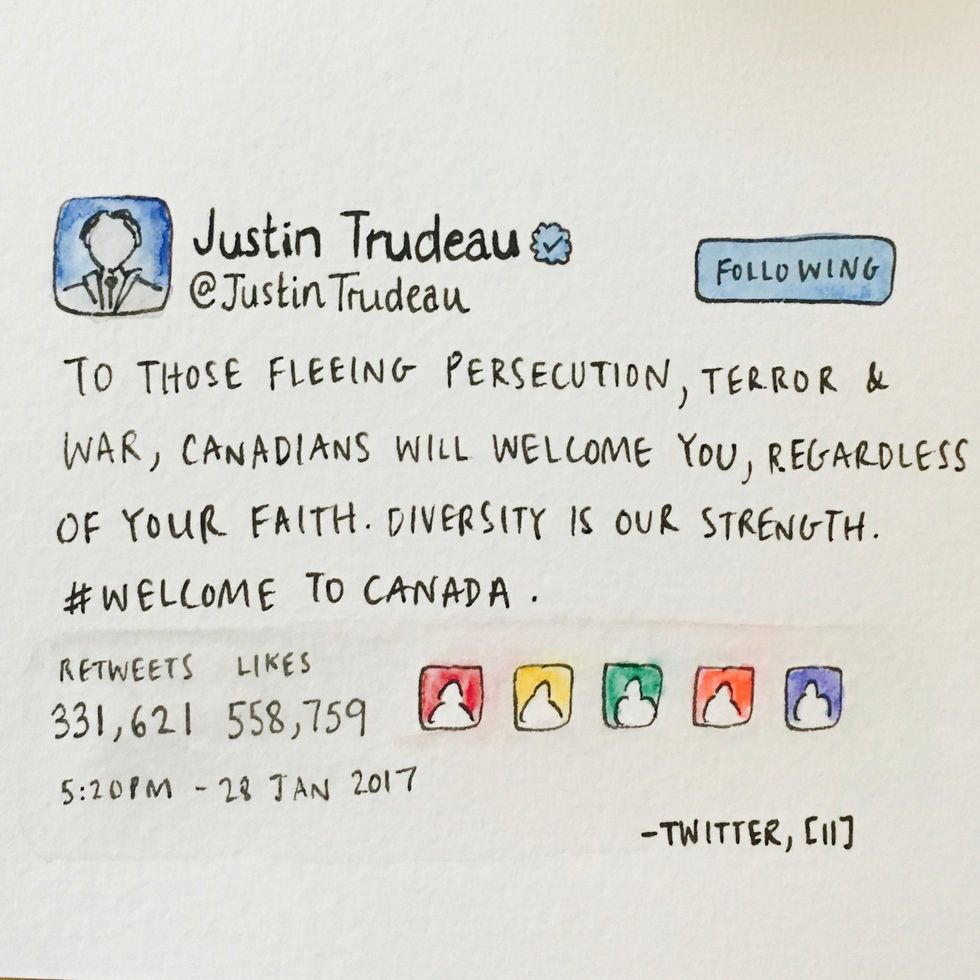 Justin Trudeau
@JustinTrudeau
FOLLOWING
TO THOSE FLEEING PERSECUTION, TERROR &
WAR, CANADIANS WILL WELCOME YOU, REGARDLESS
OF YOUR FAITH. DIVERSITY IS OUR STRENGTH.
#WELCOME TO CANADA.
RETWEETS LIKES
331,621 558,759
5:20PM - 28 JAN 2017
-TWITTER, [11]